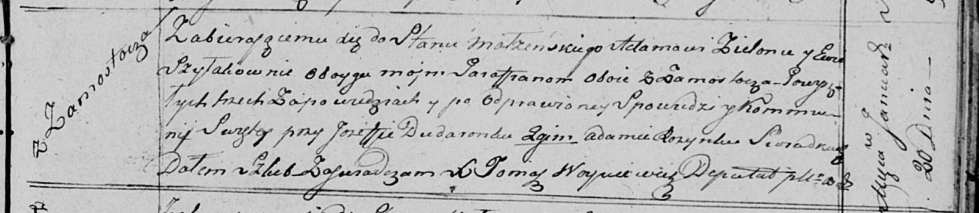 z Zamostocza
Zabierającemu się do Stanu Małżeńskiego Adamowi Zielonu y Ewie
Szyłakownie oboygu moim Parafianom oboie z Zamostocza Po wyszł
łych trzech Zapowiedziach y po odprawioney Spowiedzi y Kommu-
nij Swętey przy Jozefie Dudaronku 2gim adamie Rozynku Swiadkach
Dałem Szlub Zaswiadczam X Tomasz Woyniewicz Deputat
Januar
20 Dnia —